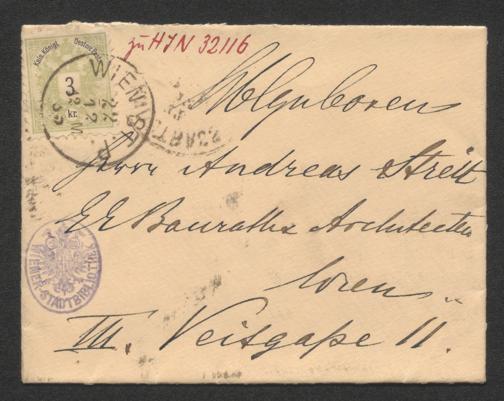 zu HIN 32116
Kais. Königl. Oesterr. Post
3
kr.
WIEN
WIENER-STADTBIBLIOTHEK
Wolgeboren
Herrn Andreas Streit
KK Baurath u Architecten
Wien
III, Veitgaße 11.